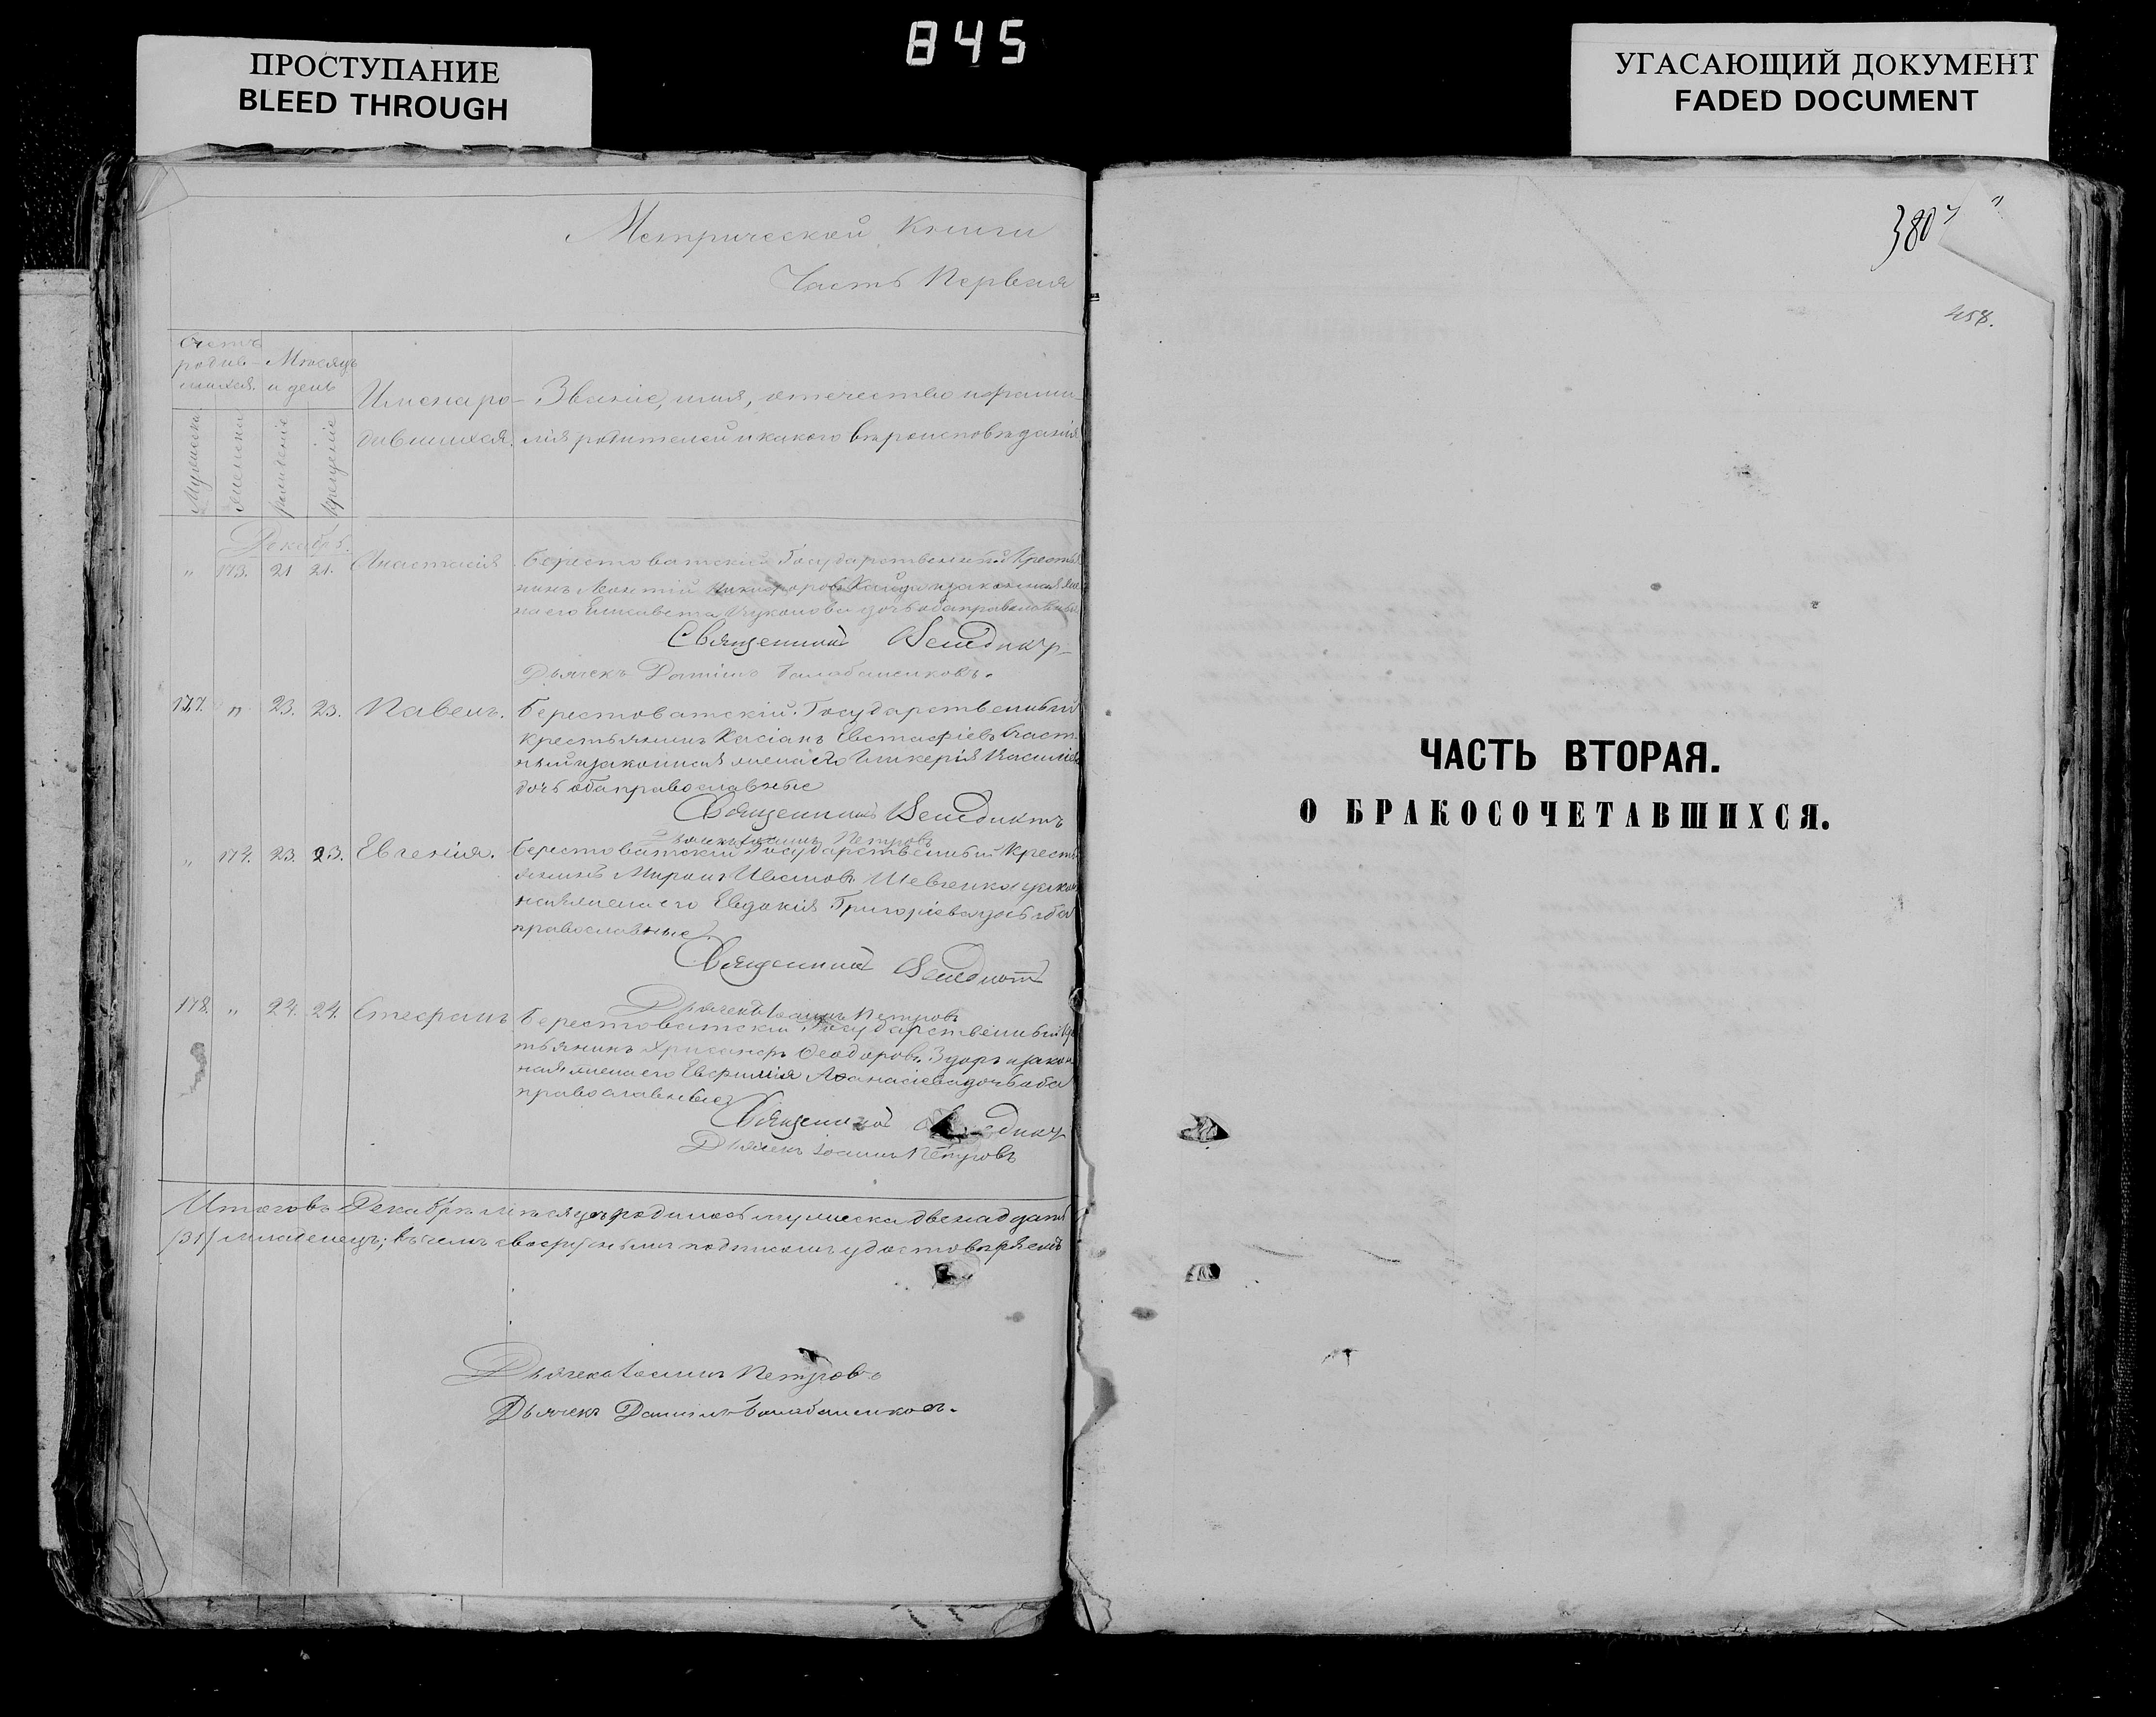 845
ПРОСТУПАНИЕ
BLEED THROUGH
УГАСАЮЩИЙ ДОКУМЕНТ
FADED DOCUMENT
Метрической Книги
Часть Первая
Счетъ родив-шихся.
Мѣсяцъ и день
Мужеска
женска
рожденіе
крещеніе
Имена ро-
дившихся.
Званіе, имя, отечество и фами-
лія родителей и какого вѣроисповѣданія
Декабрь.
„ 173. 21 21. Анастасія Берестоватскій Государственный Кресть
нинъ Леонтій Никифоровъ и законная же
на его Елисавета дочь оба православные
Священникъ
Дьячекъ Даніилъ Балабаненковъ.
177. „ 23. 23. Павелъ. Берестоватскій Государственный
крестьянинъ Касіанъ Евстафіевъ
и законная жена его Гликерія Василіева
дочь оба православные
Священникъ Венедиктъ
Дьячекъ Іоаннъ Петровъ
„ 174. 23. 23. Евгенія. Берестоватскій Государственный Кресть
янинъ Миронъ Шевченко и закон
ная жена его Евдокія Григоріева дочь оба
православные
Священникъ Венедиктъ
Дьячекъ Іоаннъ Петровъ
178. „ 24. 24. Стефанъ Берестоватскій Государственный Кре
тьянинъ Хрисанфъ Феодоровъ и закон
ная жена его Евфимія Афанасіева дочь оба
православные
Священникъ
Дьячекъ Іоаннъ Петровъ
Итого въ Декабрѣ мѣсяцѣ родилось мужеска двенадцать
/31/ младенецъ; въ чемъ своеручнымъ подписомъ удостовѣряемъ
Дьячекъ Іоаннъ Петровъ
Дьячекъ Даніилъ Балабаненковъ.
380
458.
ЧАСТЬ ВТОРАЯ.
О БРАКОСОЧЕТАВШИХСЯ.